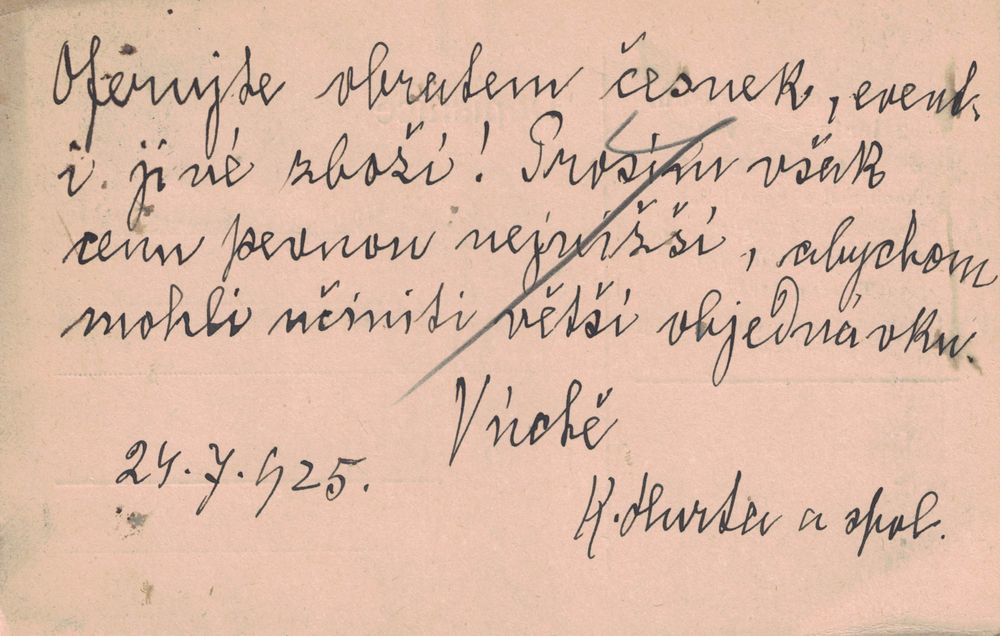 Oferujte obratem česnek, event.
i jiné zboží! Prosím však
cenu pevnou nejnižší, abychom
mohli učiniti větší objednávku.
V úctě
24.7.925.
K. a spol.